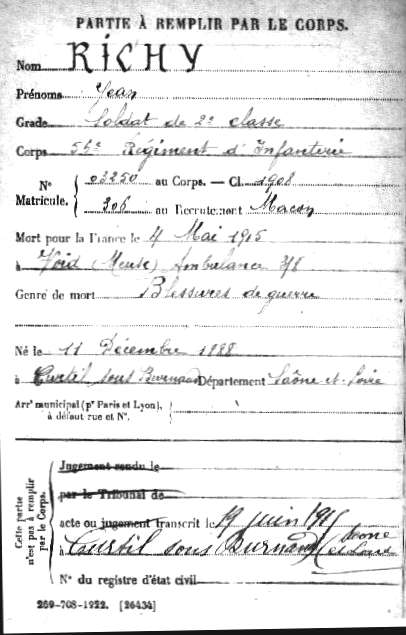 PARTIE À REMPLIR PAR LE CORPS.
Nom RICHY
Prénoms Jean
Grade Soldat de 2e classe
Corps 56e Régiment d'Infanterie
Nº Matricule. { 03250 au Corps. — Cl. 1908
206 au Recrutement Macon
Mort pour la France le 4 Mai 1915
à Void (Meuse) Ambulance 3/8
Genre de mort Blessures de guerre
Né le 11 Décembre 1888
à Curtil sous Burnand Département Saône-et-Loire
Arrt municipal (pr Paris et Lyon), à défaut rue et Nº.
Cette partie n'est pas à remplir par le Corps.
Jugement rendu le
par le Tribunal de
acte ou jugement transcrit le 19 juin 1915
à Curtil sous Burnand (Saone et Loire
Nº du registre d'état civil
269-708-1922. [26434]